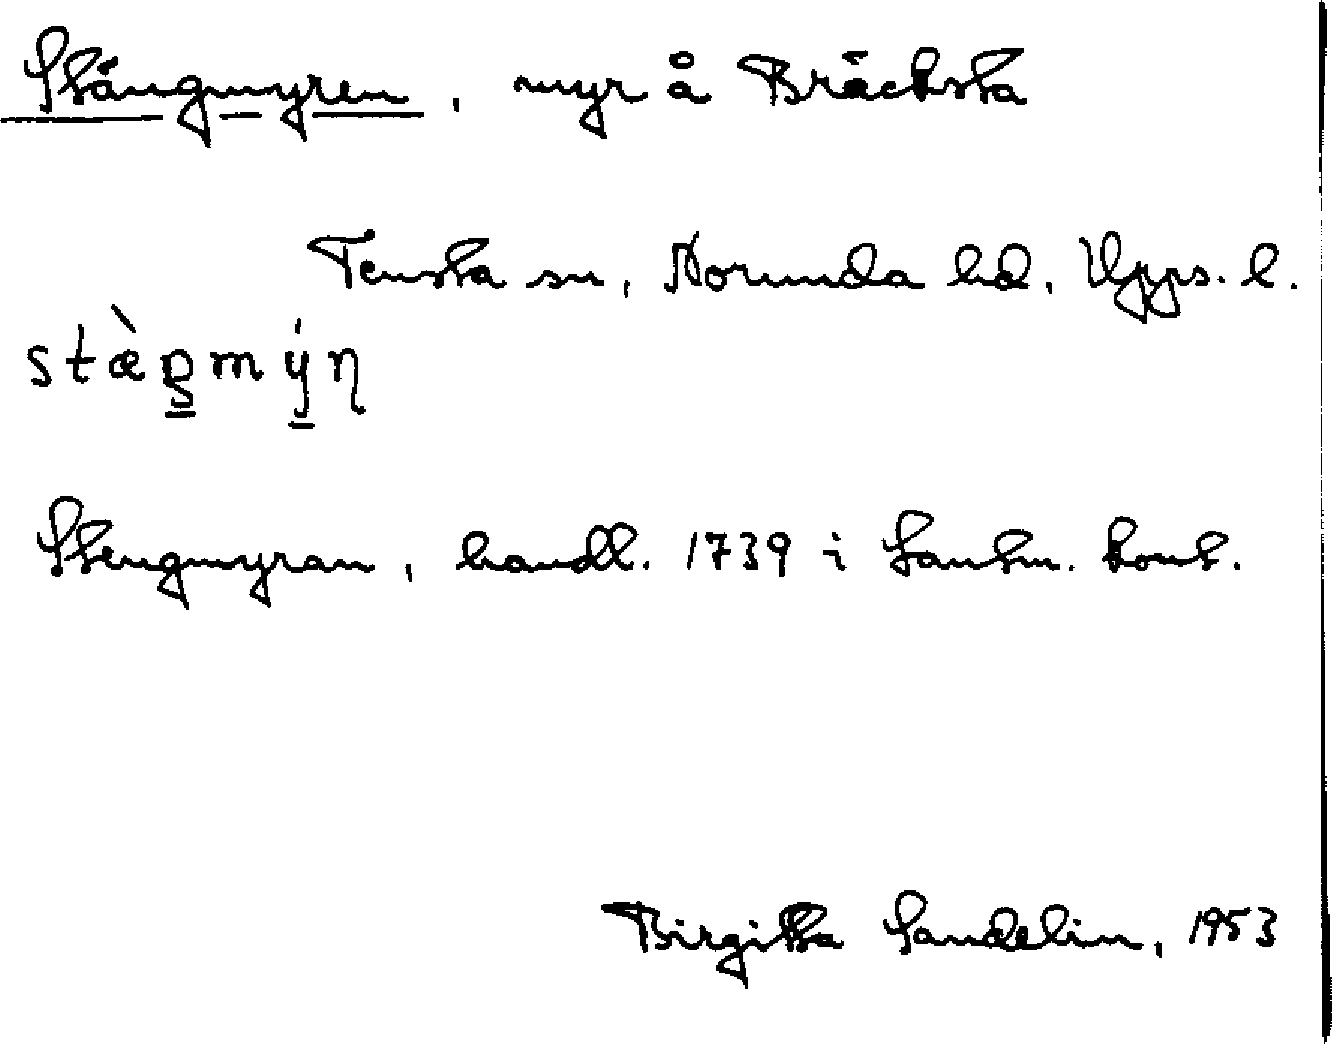 Stängmyren, myr å Bräcksta
Tensta sn, Norunda hd, Upps. l.
Stengmyran, handl. 1739 i Lantm. kont.
Birgitta Sandelin, 1953